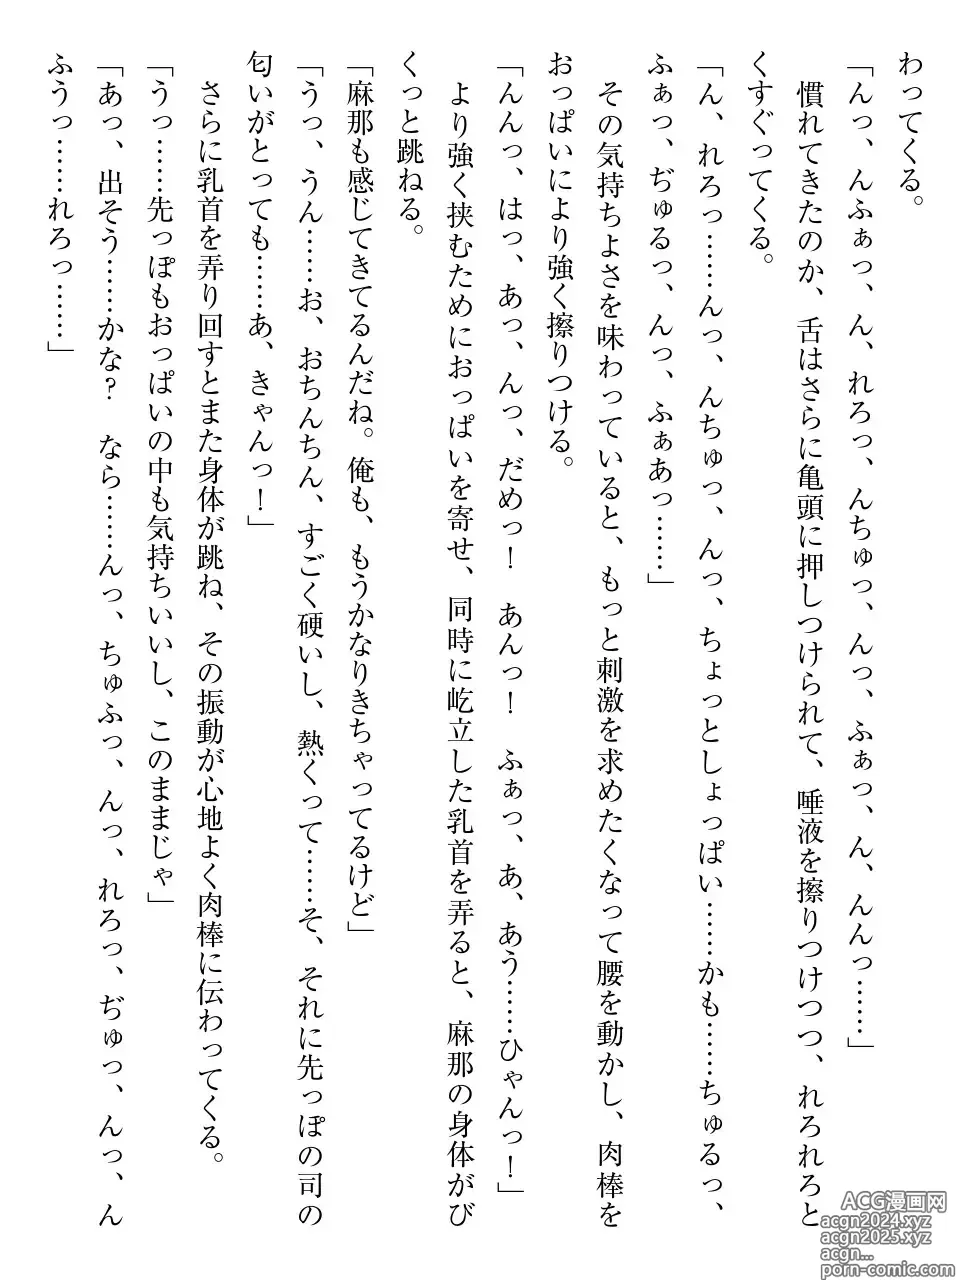 わってくる。
「んっ、んふぁっ、ん、れろっ、んちゅっ、んっ、ふぁっ、ん、んんっ……」
　慣れてきたのか、舌はさらに亀頭に押しつけられて、唾液を擦りつけつつ、れろれろと
くすぐってくる。
「ん、れろっ……んっ、んちゅっ、んっ、ちょっとしょっぱい……かも……ちゅるっ、
ふぁっ、ぢゅるっ、んっ、ふぁあっ……」
　その気持ちよさを味わっていると、もっと刺激を求めたくなって腰を動かし、肉棒を
おっぱいにより強く擦りつける。
「んんっ、はっ、あっ、んっ、だめっ！　あんっ！　ふぁっ、あ、あう……ひゃんっ！」
　より強く挟むためにおっぱいを寄せ、同時に屹立した乳首を弄ると、麻那の身体がび
くっと跳ねる。
「麻那も感じてきてるんだね。俺も、もうかなりきちゃってるけど」
「うっ、うん……お、おちんちん、すごく硬いし、熱くって……そ、それに先っぽの司の
匂いがとっても……あ、きゃんっ！」
　さらに乳首を弄り回すとまた身体が跳ね、その振動が心地よく肉棒に伝わってくる。
「うっ……先っぽもおっぱいの中も気持ちいいし、このままじゃ」
「あっ、出そう……かな？　なら……んっ、ちゅふっ、んっ、れろっ、ぢゅっ、んっ、ん
ふうっ……れろっ……」
ACG漫画网
acgn2024.xyz
acgn2025.xyz
acgn...
porn-comic.com